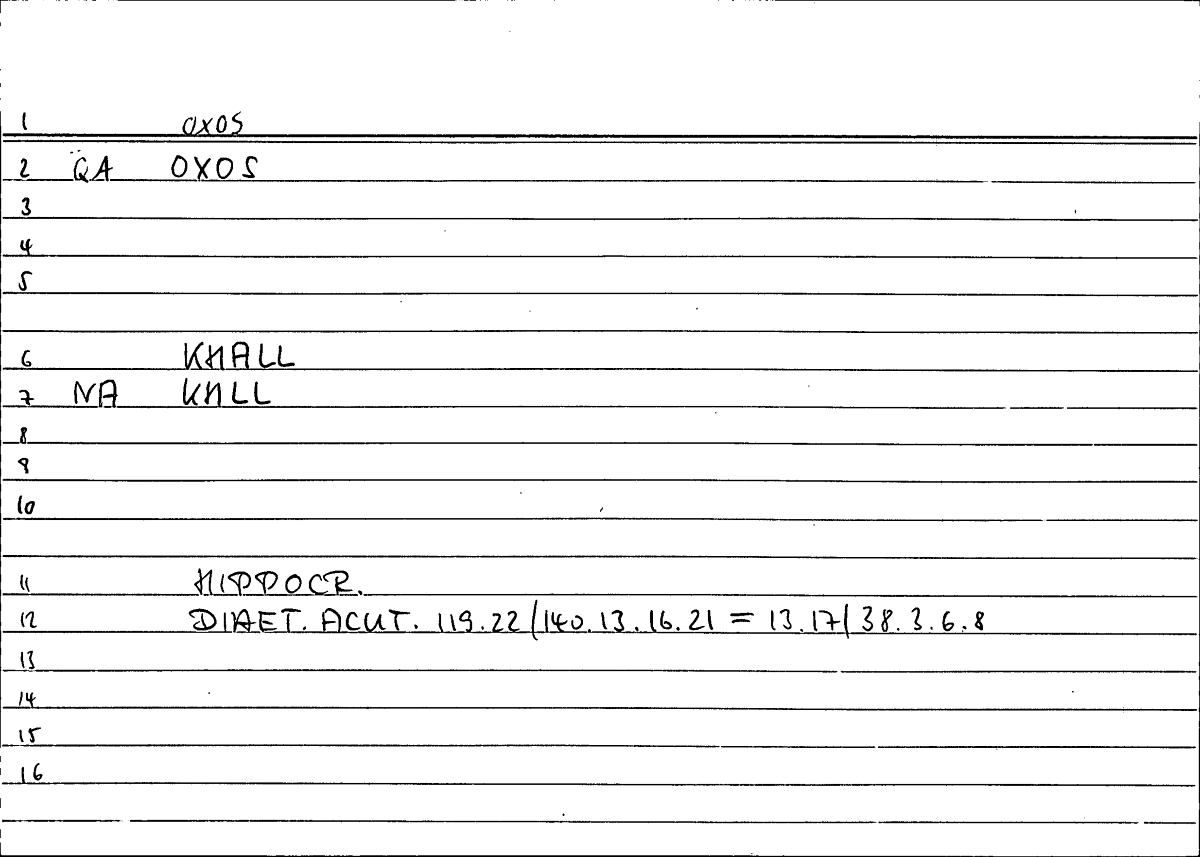 1 OXOS
2 QA OXOS
3
4
5
6 KHALL
7 NA KHLL
8
9
10
11 HIPPOCR.
12 DIAET. ACUT. 119.22/140.13.16.21 = 13.17/38.3.6.8
13
14
15
16